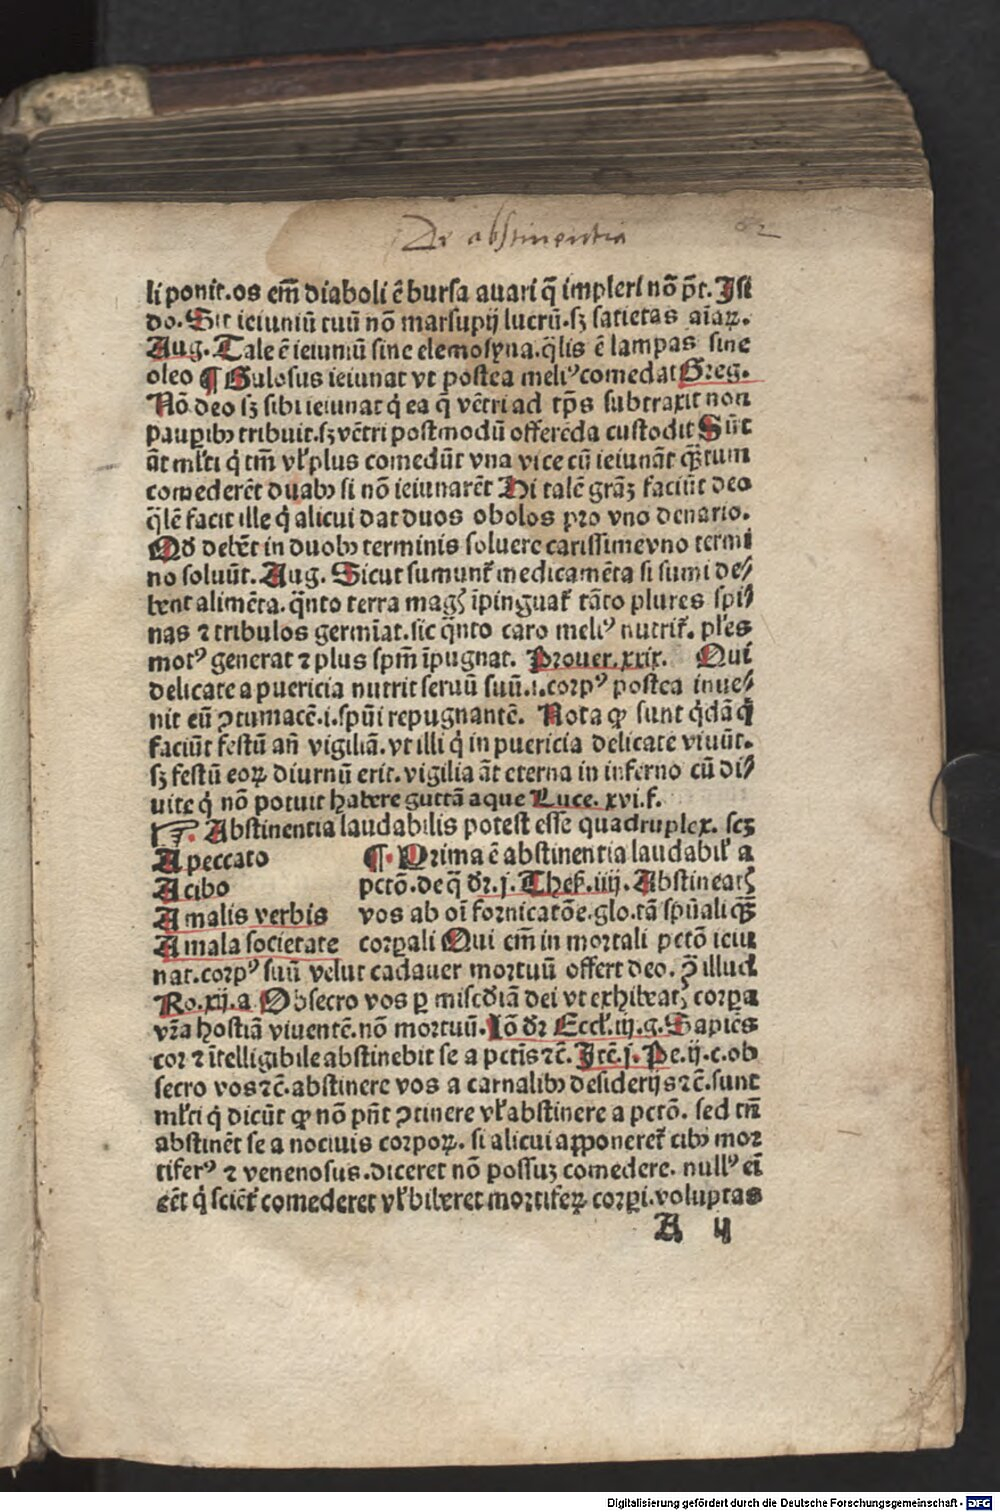 De abstinentia
li ponit.os em̄ diaboli ē bursa auari q̄ impleri nō pōt. Isi
do. Sit ieiuniū tuū nō marsupij lucrū.sꝫ satietas aīaꝝ.
Aug. Tale ē ieiuniū sine elemosyna.q̄lis ē lampas sine
oleo ¶ Gulosus ieiunat vt postea meliꝰ comedat Greg.
Nō deo sꝫ sibi ieiunat q̇ ea q̄ vētri ad tp̄s subtraxit non
pauꝑibꝫ tribuit.sꝫ vētri postmodū offerēda custodit Sūt
āt ml̓ti q̇ tm̄ vl̓ plus comedūt vna vice cū ieiunāt q̄ꝫtum
comederēt duabꝫ si nō ieiunarēt Hi talē grāꝫ faciūt deo
q̄lē facit ille q̇ alicui dat duos obolos pro vno denario.
Qd̓ debēt in duobꝫ terminis soluere carissime vno termi
no soluūt. Aug. Sicut sumunt᷑ medicamēta si sumi de⸗
bent alimēta. q̄nto terra magꝭ īpinguat᷑ tāto plures spi⸗
nas ⁊ tribulos germīat.sic q̄nto caro meliꝰ nutrit᷑. pl̓es
motꝰ generat ⁊ plus spm̄ īpugnat. Prouer.xxix. Qui
delicate a puericia nutrit seruū suū.i.corpꝰ postea inue⸗
nit eū ꝯtumacē.i.spūi repugnantē. Nota ꝙ sunt q̇dā q̇
faciūt festū an̄ vigiliā.vt illi q̇ in puericia delicate viuūt.
sꝫ festū eoꝝ diurnū erit.vigilia āt eterna in inferno cū di⸗
uite q̇ nō potuit habere guttā aque Luce. xvi.f.
☞. Abstinentia laudabilis potest esse quadruplex. scꝫ
A peccato
A cibo
A malis verbis
A mala societate
¶. Prima ē abstinentia laudabil̓ a
pctō.de q̄ dr̄.j. Thes̓. iiij. Abstineatꝭ
vos ab oī fornicatōe.glo.tā spūali q̄ꝫ
corꝑali Qui em̄ in mortali pctō ieiu
nat.corpꝰ suū velut cadauer mortuū offert deo. ꝯ̄ illud
Ro.xij.a Obsecro vos ꝑ misc̓diā dei vt exhibeatꝭ corꝑa
vr̄a hostiā viuentē.nō mortuū. Iō dr̄ Eccl̓.iij.g. Sapiēs
cor ⁊ ītelligibile abstinebit se a pctīs ⁊c̄. Itē.j. Pe.ij.c.ob
secro vos ⁊c̄.abstinere vos a carnalibꝫ desiderijs ⁊c̄.sunt
ml̓ti q̇ dicūt ꝙ nō pn̄t ꝯtinere vl̓ abstinere a pctō. sed tn̄
abstinēt se a nociuis corpoꝝ. si alicui apponeret᷑ cibꝰ mor
tiferꝰ ⁊ venenosus.diceret nō possuꝫ comedere. nullꝰ em̄
eēt q̇ sciēt᷑ comederet vl̓ biberet mortifeꝝ corꝑi.voluptas
A ij